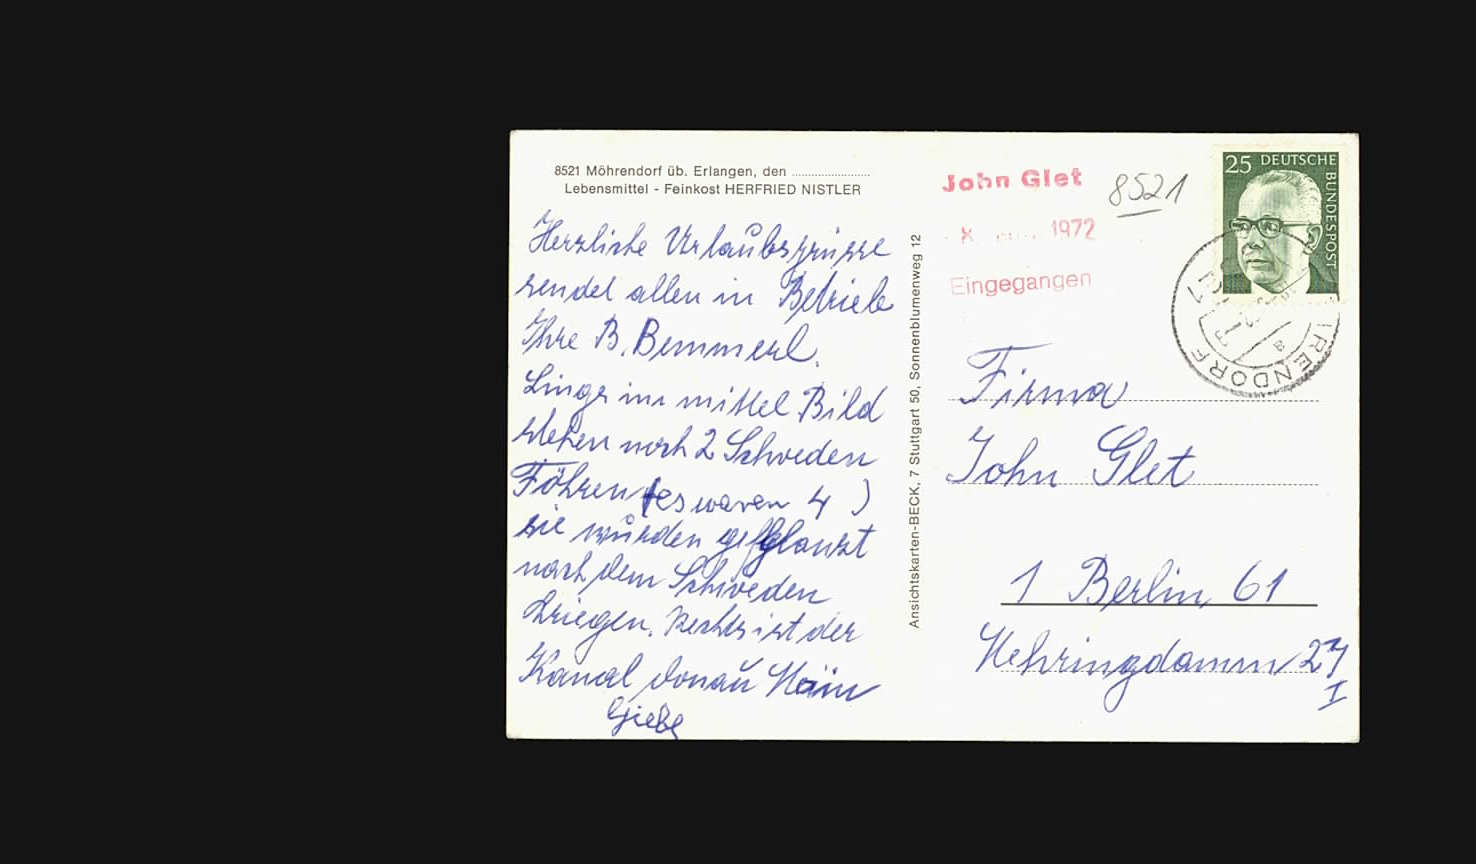 8521 Möhrendorf üb. Erlangen, den
Lebensmittel - Feinkost HERFRIED NISTLER
Herzliche Urlaubsgrüsse
sendet allen in Betriebe
Ihre B. Bemmerl.
Lings im mittel Bild
stehen noch 2 Schweden
Föhren (es waren 4)
sie wurden gepflanzt
nach dem Schweden
kriegen. Rechts ist der
Kanal Donau Main
Ansichtskarten-BECK, 7 Stuttgart 50, Sonnenblumenweg 12
John Glet
1972
Eingegangen
8521
25 DEUTSCHE BUNDESPOST
Firma
John Glet
1 Berlin 61
Mehringdamm 27
I